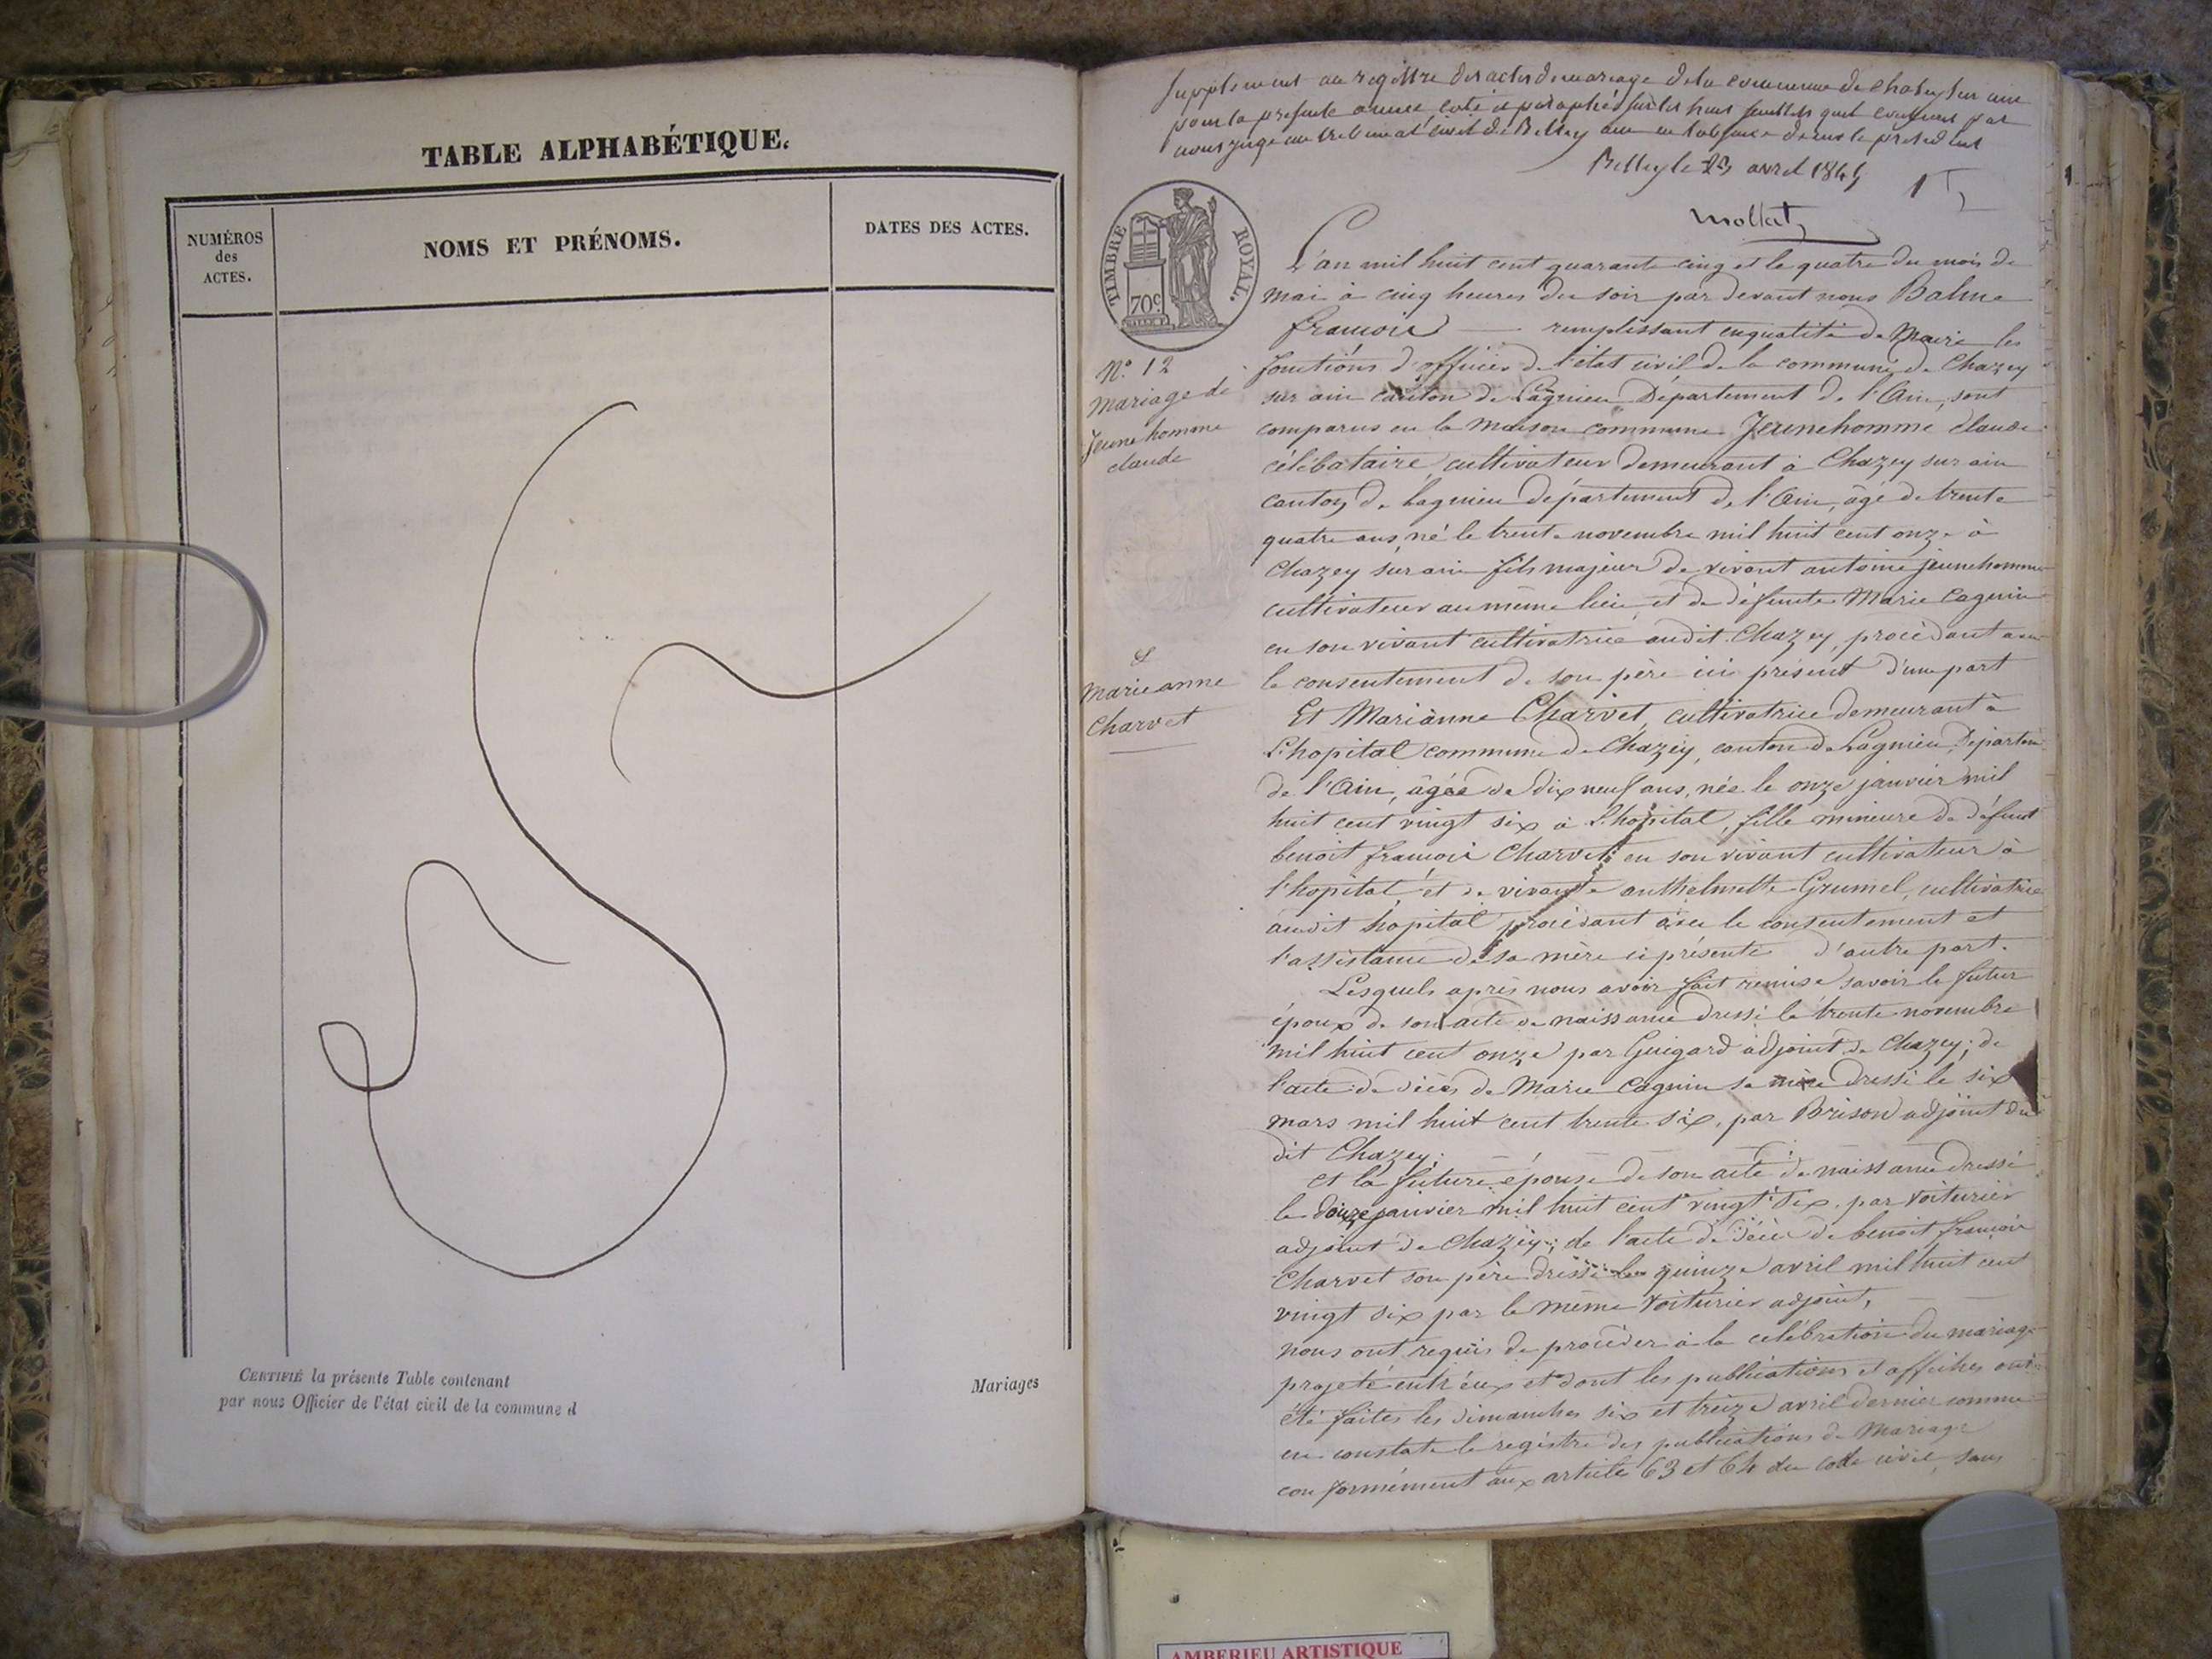 TABLE ALPHABÉTIQUE.
NUMÉROS
des
ACTES.
NOMS ET PRÉNOMS.
DATES DES ACTES.
CERTIFIÉ la présente Table contenant
par nous Officier de l'état civil de la commune d
Mariages
Supplement au registre des actes de mariage de la commune de Chazey sur ain
pour la presente année, coté et paraphé sur les huit feuillets quil contient par
nous juge au tribunal civil de Belley en l'absence de mr le president
Belley le 23 avril 1845
Mollet
1
TIMBRE ROYAL.
70c
L'an mil huit cent quarante cinq et le quatre du mois de
mai à cinq heures du soir par devant nous Balme
françois remplissant en qualité de Maire les
fonctions d'officier de l'état civil de la commune de Chazey
sur ain canton de Lagnieu Département de l'Ain, sont
comparus en la maison commune Jeunehomme Claude
célibataire, cultivateur demeurant à Chazey sur ain
canton de Lagnieu département de l'Ain, âgé de trente
quatre ans, né le trente novembre mil huit cent onze à
Chazey sur ain fils majeur de vivant antoine jeunehomme
cultivateur au même lieu et de défunte Marie Cagnin
en son vivant cultivatrice audit Chazey, procédant avec
le consentement de son père ici présent d'une part
Et Marianne Charvet, cultivatrice demeurant à
L'hopital commune de Chazey, canton de Lagnieu, Départem
de l'Ain, âgée de dix neuf ans, née le onze janvier mil
huit cent vingt six à L'hopital, fille mineure de défunt
benoit françois Charvet en son vivant cultivateur à
l'hopital et de vivante anthelmette Grumel, cultivatrice
audit hopital procédant avec le consentement et
l'assistance de sa mère ici présente d'autre part.
Lesquels après nous avoir fait remise savoir le futur
époux de son acte de naissance dressé le trente novembre
mil huit cent onze par Guigard adjoint de Chazey; de
l'acte de décès de Marie Cagnin sa mère dressé le six
mars mil huit cent trente six, par Brison adjoint du
dit Chazey;
et la future épouse de son acte de naissance dressé
le douze janvier mil huit cent vingt six, par Voiturier
adjoint de Chazey; de l'acte de décès de benoit françois
Charvet son père dressé le quinze avril mil huit cent
vingt six par le même Voiturier adjoint,
nous ont requis de procéder à la célébration du mariage
projeté entr'eux et dont les publications et affiches ont
été faites les dimanches six et treize avril dernier comme
en constate le registre des publications de Mariage
conformément aux article 63 et 64 du code civil, sans
N.º 12
Mariage de
Jeunehomme
claude
&
Marieanne
Charvet
AMBERIEU ARTISTIQUE